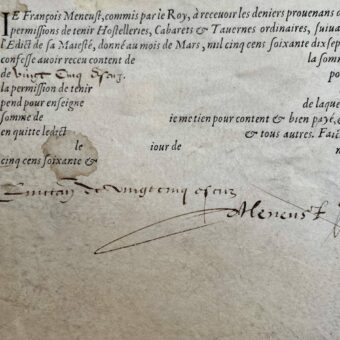 IE François Meneust, commis par le Roy, à receuoir les deniers prouenans d
permissions de tenir Hostelleries, Cabarets & Tauernes ordinaires, suiua
l'Edict de sa Maiesté, donné au mois de Mars, mil cinq cens soixante dix sep
confesse auoir receu content de la somm
de vingt cinq escuz
la permission de tenir
pend pour enseigne de laque
somme de ie me tien pour content & bien payé, &
en quitte ledict & tous autres. Faic
le iour de
cinq cens soixante &
Quittan de vingt cinq escuz
Meneust